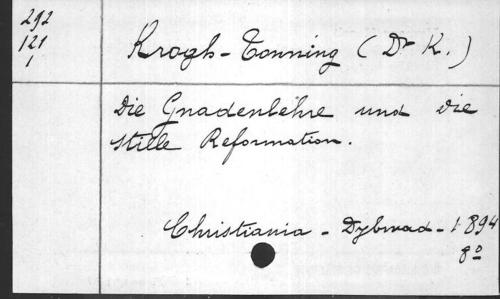 292
121
1
Krogh-Tonning (Dr K.)
Die Gnadenlehre und die
stille Reformation.
Christiania - Dybwad - 1894
8°